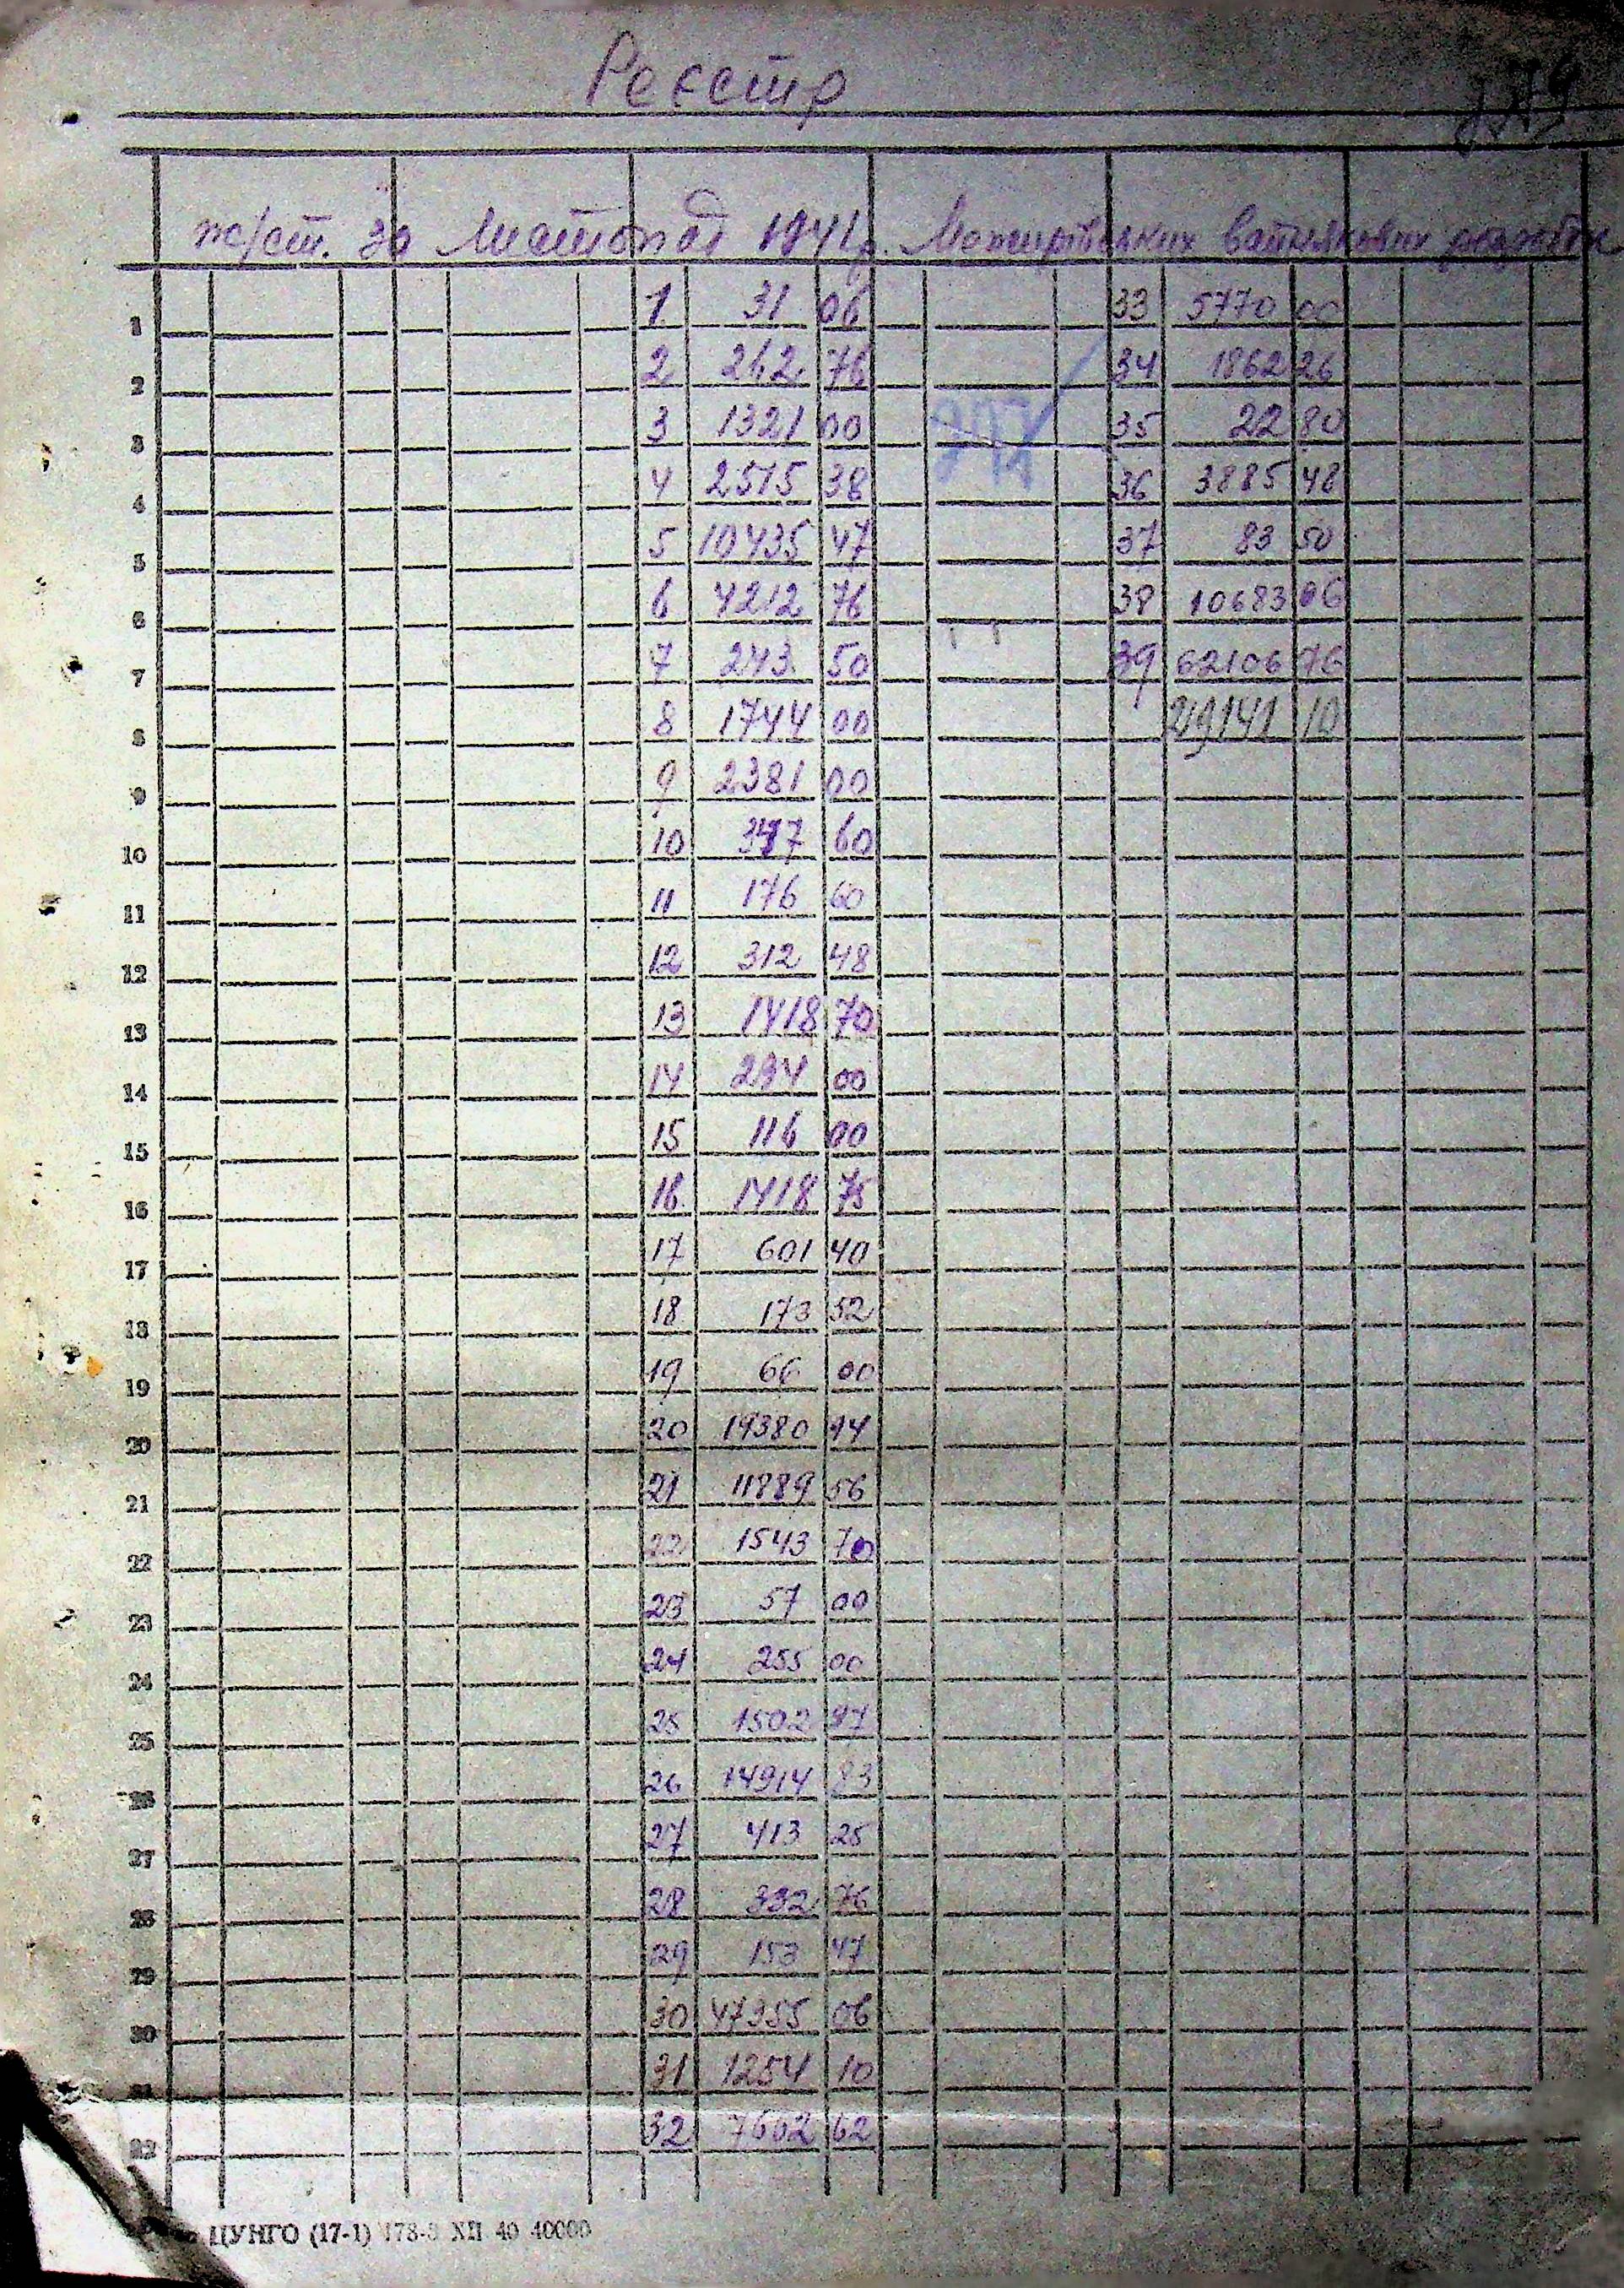 Реєстр
ж/ст. за Листопад 1941р. вапнякових
1 1 31 06 33 5770 00
2 2 262 76 34 1862 26
3 3 1321 00 35 22 80
4 4 2515 38 36 3885 48
5 5 10435 47 37 83 50
6 6 4212 76 38 10683 06
7 7 243 50 39 62106 76
8 8 1744 00 219141 10
9 9 2381 00
10 10 60
11 11 176 60
12 12 312 48
13 13 1418 70
14 14 294 00
15 15 116 00
16 16 1418 75
17 17 601 40
18 18 173 52
19 19 66 00
20 20 19380 94
21 21 11889 56
22 22 1543 70
23 23 57 00
24 24 255 00
25 25 1502 97
26 26 14914 83
27 27 413 25
28 28 332 76
29 29 153 47
30 30 47355 06
31 31 1254 10
32 32 7602 62
ЦУНГО (17-1) 178-3 XII 40 40000